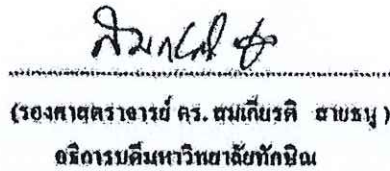 (รองศาสตราจารย์ ดร. สมเกียรติ สายธนู)
อธิการบดีมหาวิทยาลัยทักษิณ